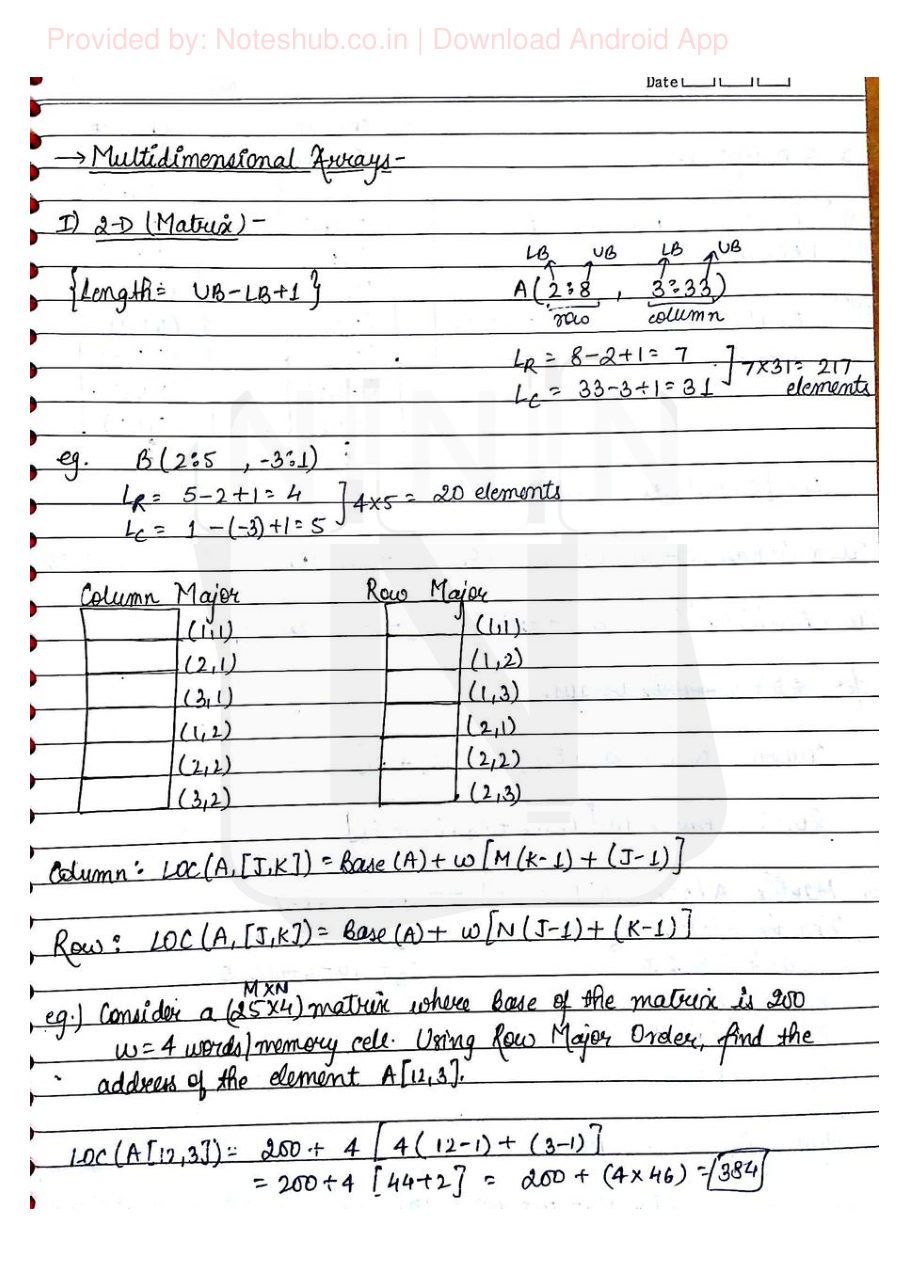 Provided by: Noteshub.co.in | Download Android App
Date
→ Multidimensional Arrays-
I) 2-D (Matrix) -
LB UB LB UB
{Length = UB-LB+1} A(2:8 , 3:33)
row column
LR = 8-2+1 = 7
LC = 33-3+1 = 31 ] 7×31 = 217 elements
eg. B(2:5 , -3:1) :
LR = 5-2+1 = 4
LC = 1-(-3)+1 = 5 ] 4×5 = 20 elements
Column Major Row Major
(1,1) (1,1)
(2,1) (1,2)
(3,1) (1,3)
(1,2) (2,1)
(2,2) (2,2)
(3,2) (2,3)
Column: LOC(A,[J,K]) = Base(A) + w[M(K-1) + (J-1)]
Row: LOC(A,[J,K]) = Base(A) + w[N(J-1) + (K-1)]
M×N
eg.) Consider a (25×4) matrix where Base of the matrix is 200
w = 4 words/memory cell. Using Row Major Order, find the
address of the element A[12,3].
LOC(A[12,3]) = 200 + 4 [4(12-1) + (3-1)]
= 200+4 [44+2] = 200 + (4×46) = 384